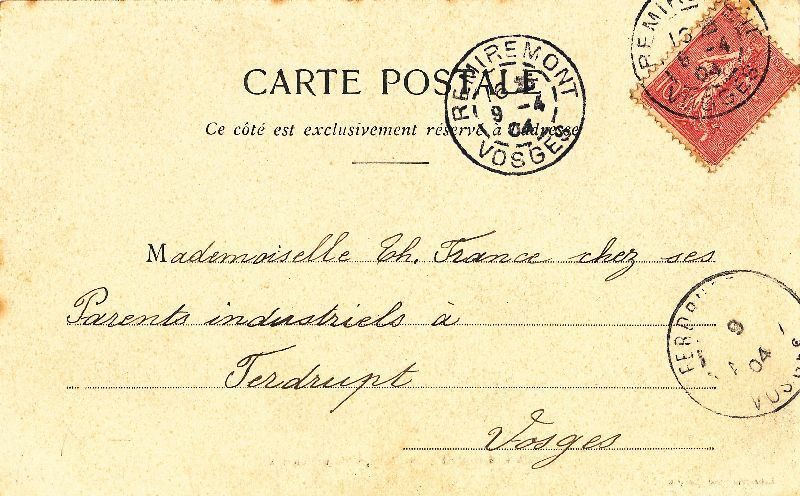 CARTE POSTALE
Ce côté est exclusivement réservé à l'adresse
REMIREMONT
9 -4
04
VOSGES
REMIR
-4
04
VOSGES
10
Mademoiselle Th. France chez ses
Parents industriels à
Ferdrupt
Vosges
FERDRUPT
9
04
VOSGES